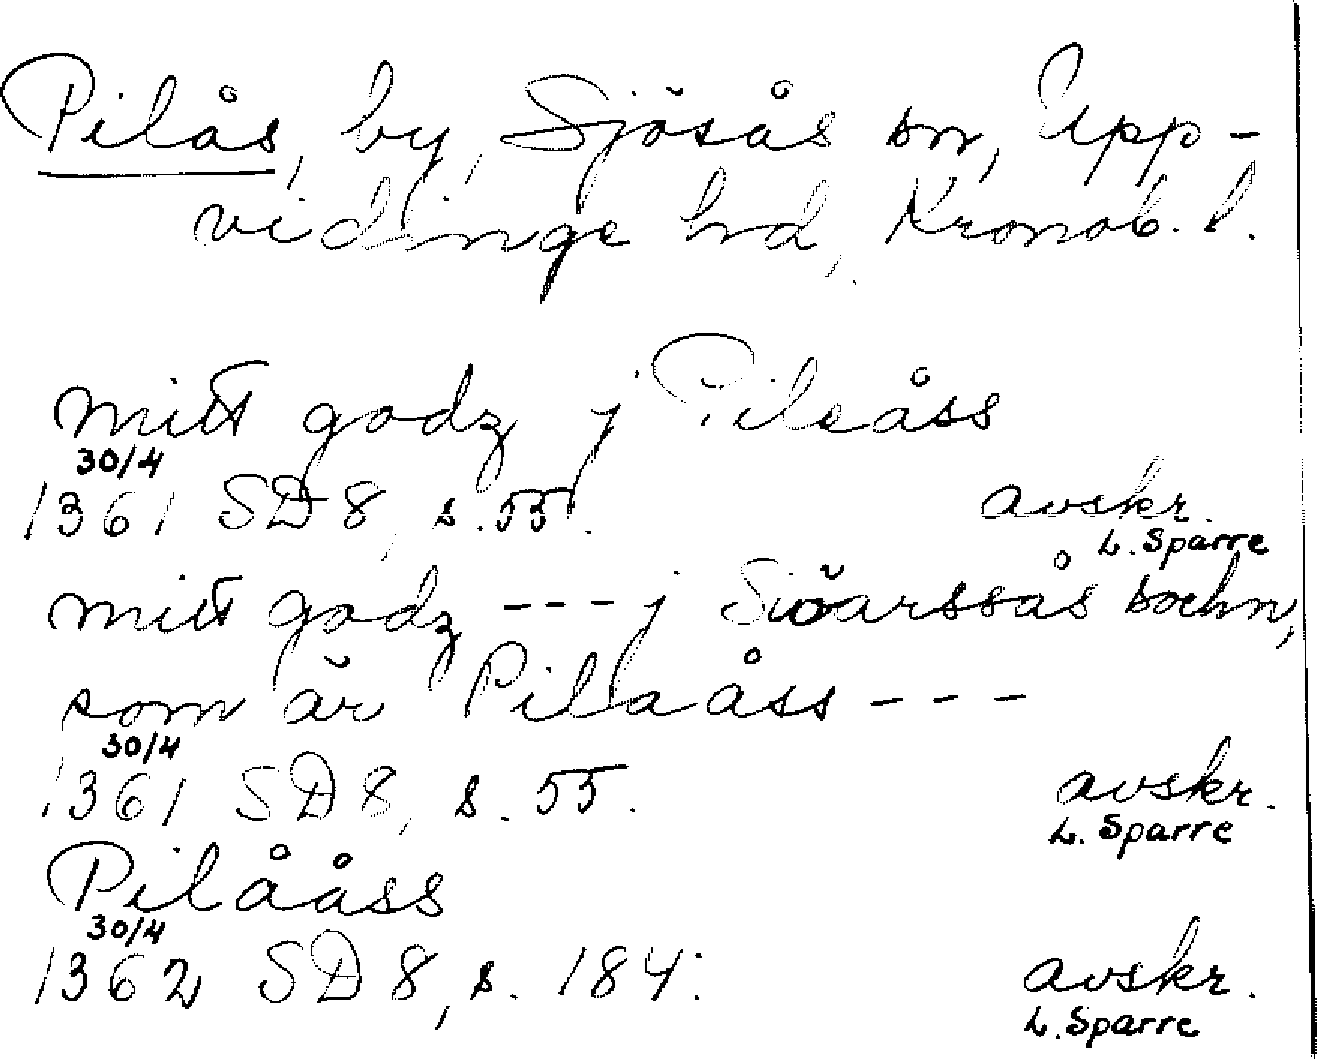 Pilås, by, Sjösås sn, Upp-
vidinge hd, Kronob. l.
mitt godz j Pileåss
30/4
1361 SD 8, s. 55.
avskr.
L. Sparre
mitt godz --- j Siöarssås sochn,
som är Pilaåss ---
30/4
1361 SD 8, s. 55.
avskr.
L. Sparre
Pilååss
30/4
1362 SD 8, s. 184.
avskr.
L. Sparre